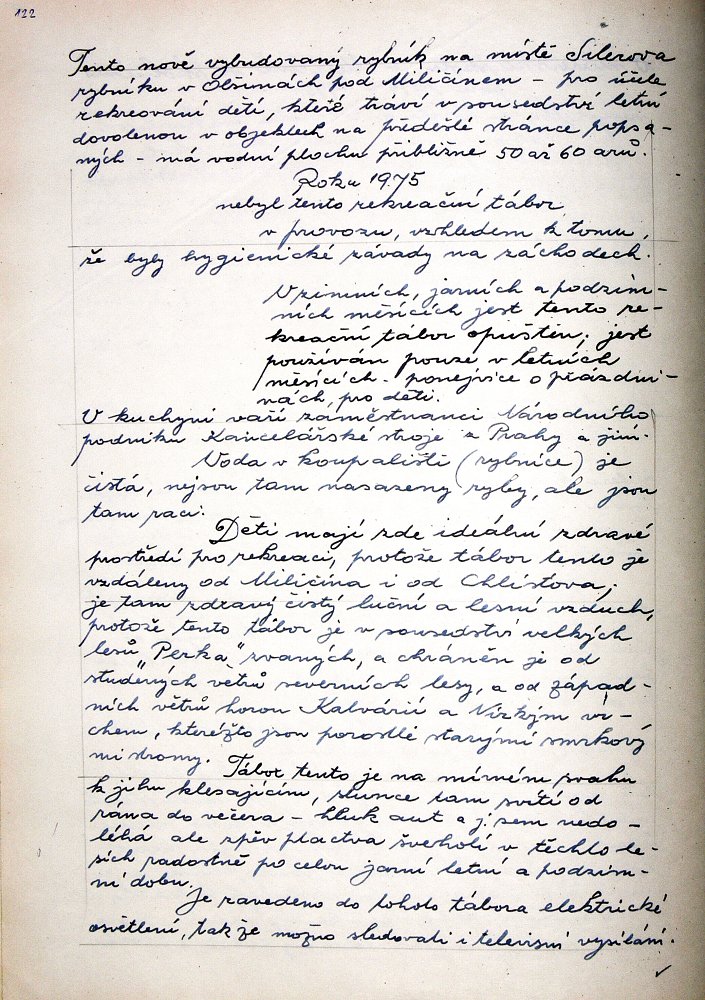 122
Tento nově vybudovaný rybník na místě Silerova
rybníku v Olšinách pod Miličínem - pro účele
rekreování dětí, které tráví v sousedství letní
dovolenou v objektech na předešlé stránce popsa-
ných - má vodní plochu přibližně 50 až 60 arů.
Roku 1975
nebyl tento rekreační tábor
v provozu, vzhledem k tomu,
že byly hygienické závady na záchodech.
V zimních, jarních a podzim-
ních měsících jest tento re-
kreační tábor opuštěn; jest
používán pouze v letních
měsících - ponejvíce o prázdni-
nách, pro děti.
V kuchyni vaří zaměstnanci Národního
podniku Kancelářské stroje z Prahy a jiní.
Voda v koupališti (rybníce) je
čistá, nejsou tam nasazeny ryby, ale jsou
tam raci.
Děti mají zde ideální zdravé
prostředí pro rekreaci, protože tábor tento je
vzdáleny od Miličína i od Chlístova;
je tam zdravý čistý luční a lesní vzduch,
protože tento tábor je v sousedství velkých
lesů "Perka" zvaných, a chráněn je od
studených větrů severních lesy, a od západ-
ních větrů horou Kalvárií a Nízkým vr-
chem, kteréžto jsou porostlé starými smrkový
mi stromy.
Tábor tento je na mírném svahu
k jihu klesajícím, slunce tam svítí od
rána do večera - hluk aut a j. sem nedo-
léhá ale zpěv ptactva šveholí v těchto le-
sích radostně po celou jarní letní a podzim-
ní dobu.
Je zavedeno do tohoto tábora elektrické
osvětlení, takže možno sledovati i televisní vysílání.